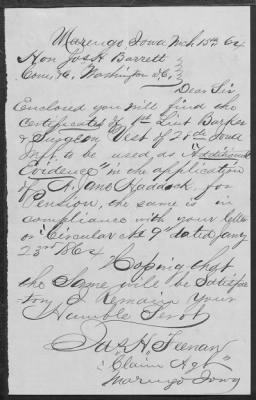 Marengo Iowa Mch 15th 64
Hon Jos H Barrett
Com, &c, Washington D.C,
Dear Sir
Enclosed you will find the
certificates of 1st Lieut Barker
& Surgeon Vest of 28th Iowa
Inft. to be used, as "Additional
Evidence" in the application
of A. Jane Haddock, for
Pension, the same is in
compliance with your letter
or "Circular No 9" dated Jany
23rd 1864
Hoping that
the same will be Satisfac
tory I Remain Your
Humble Servt
Jas H Feenan
"Claim Agt"
Marengo Iowa